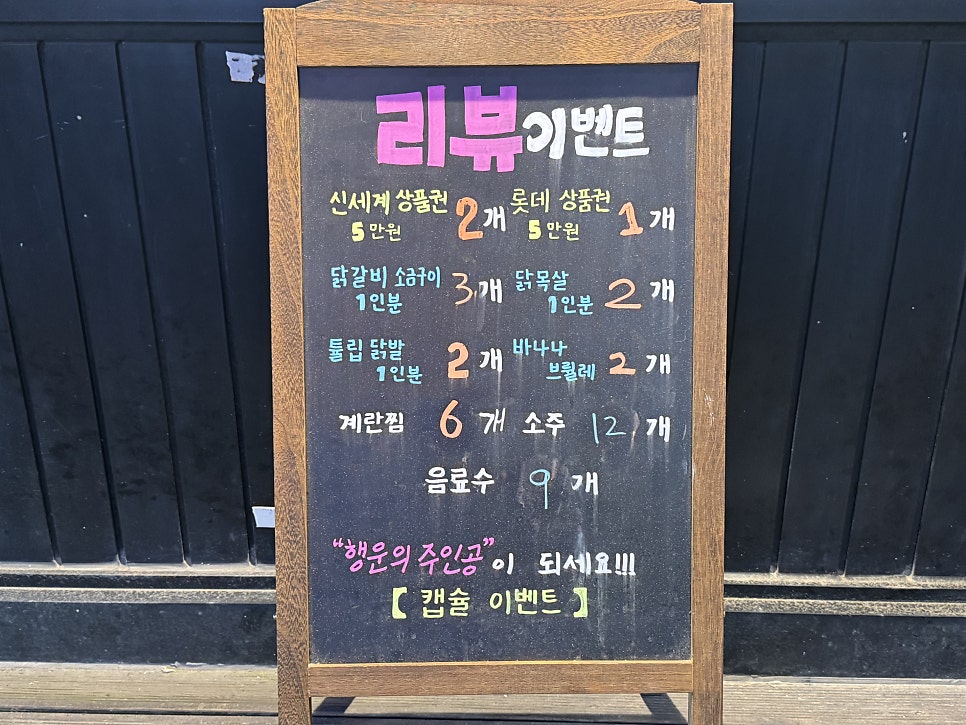 리뷰이벤트
신세계 상품권 5만원 2개 롯데 상품권 5만원 1개
닭갈비 소금구이 1인분 3개 닭목살 1인분 2개
튤립 닭발 1인분 2개 바나나 브륄레 2개
계란찜 6개 소주 12개
음료수 9개
“행운의 주인공”이 되세요!!!
【캡슐 이벤트】